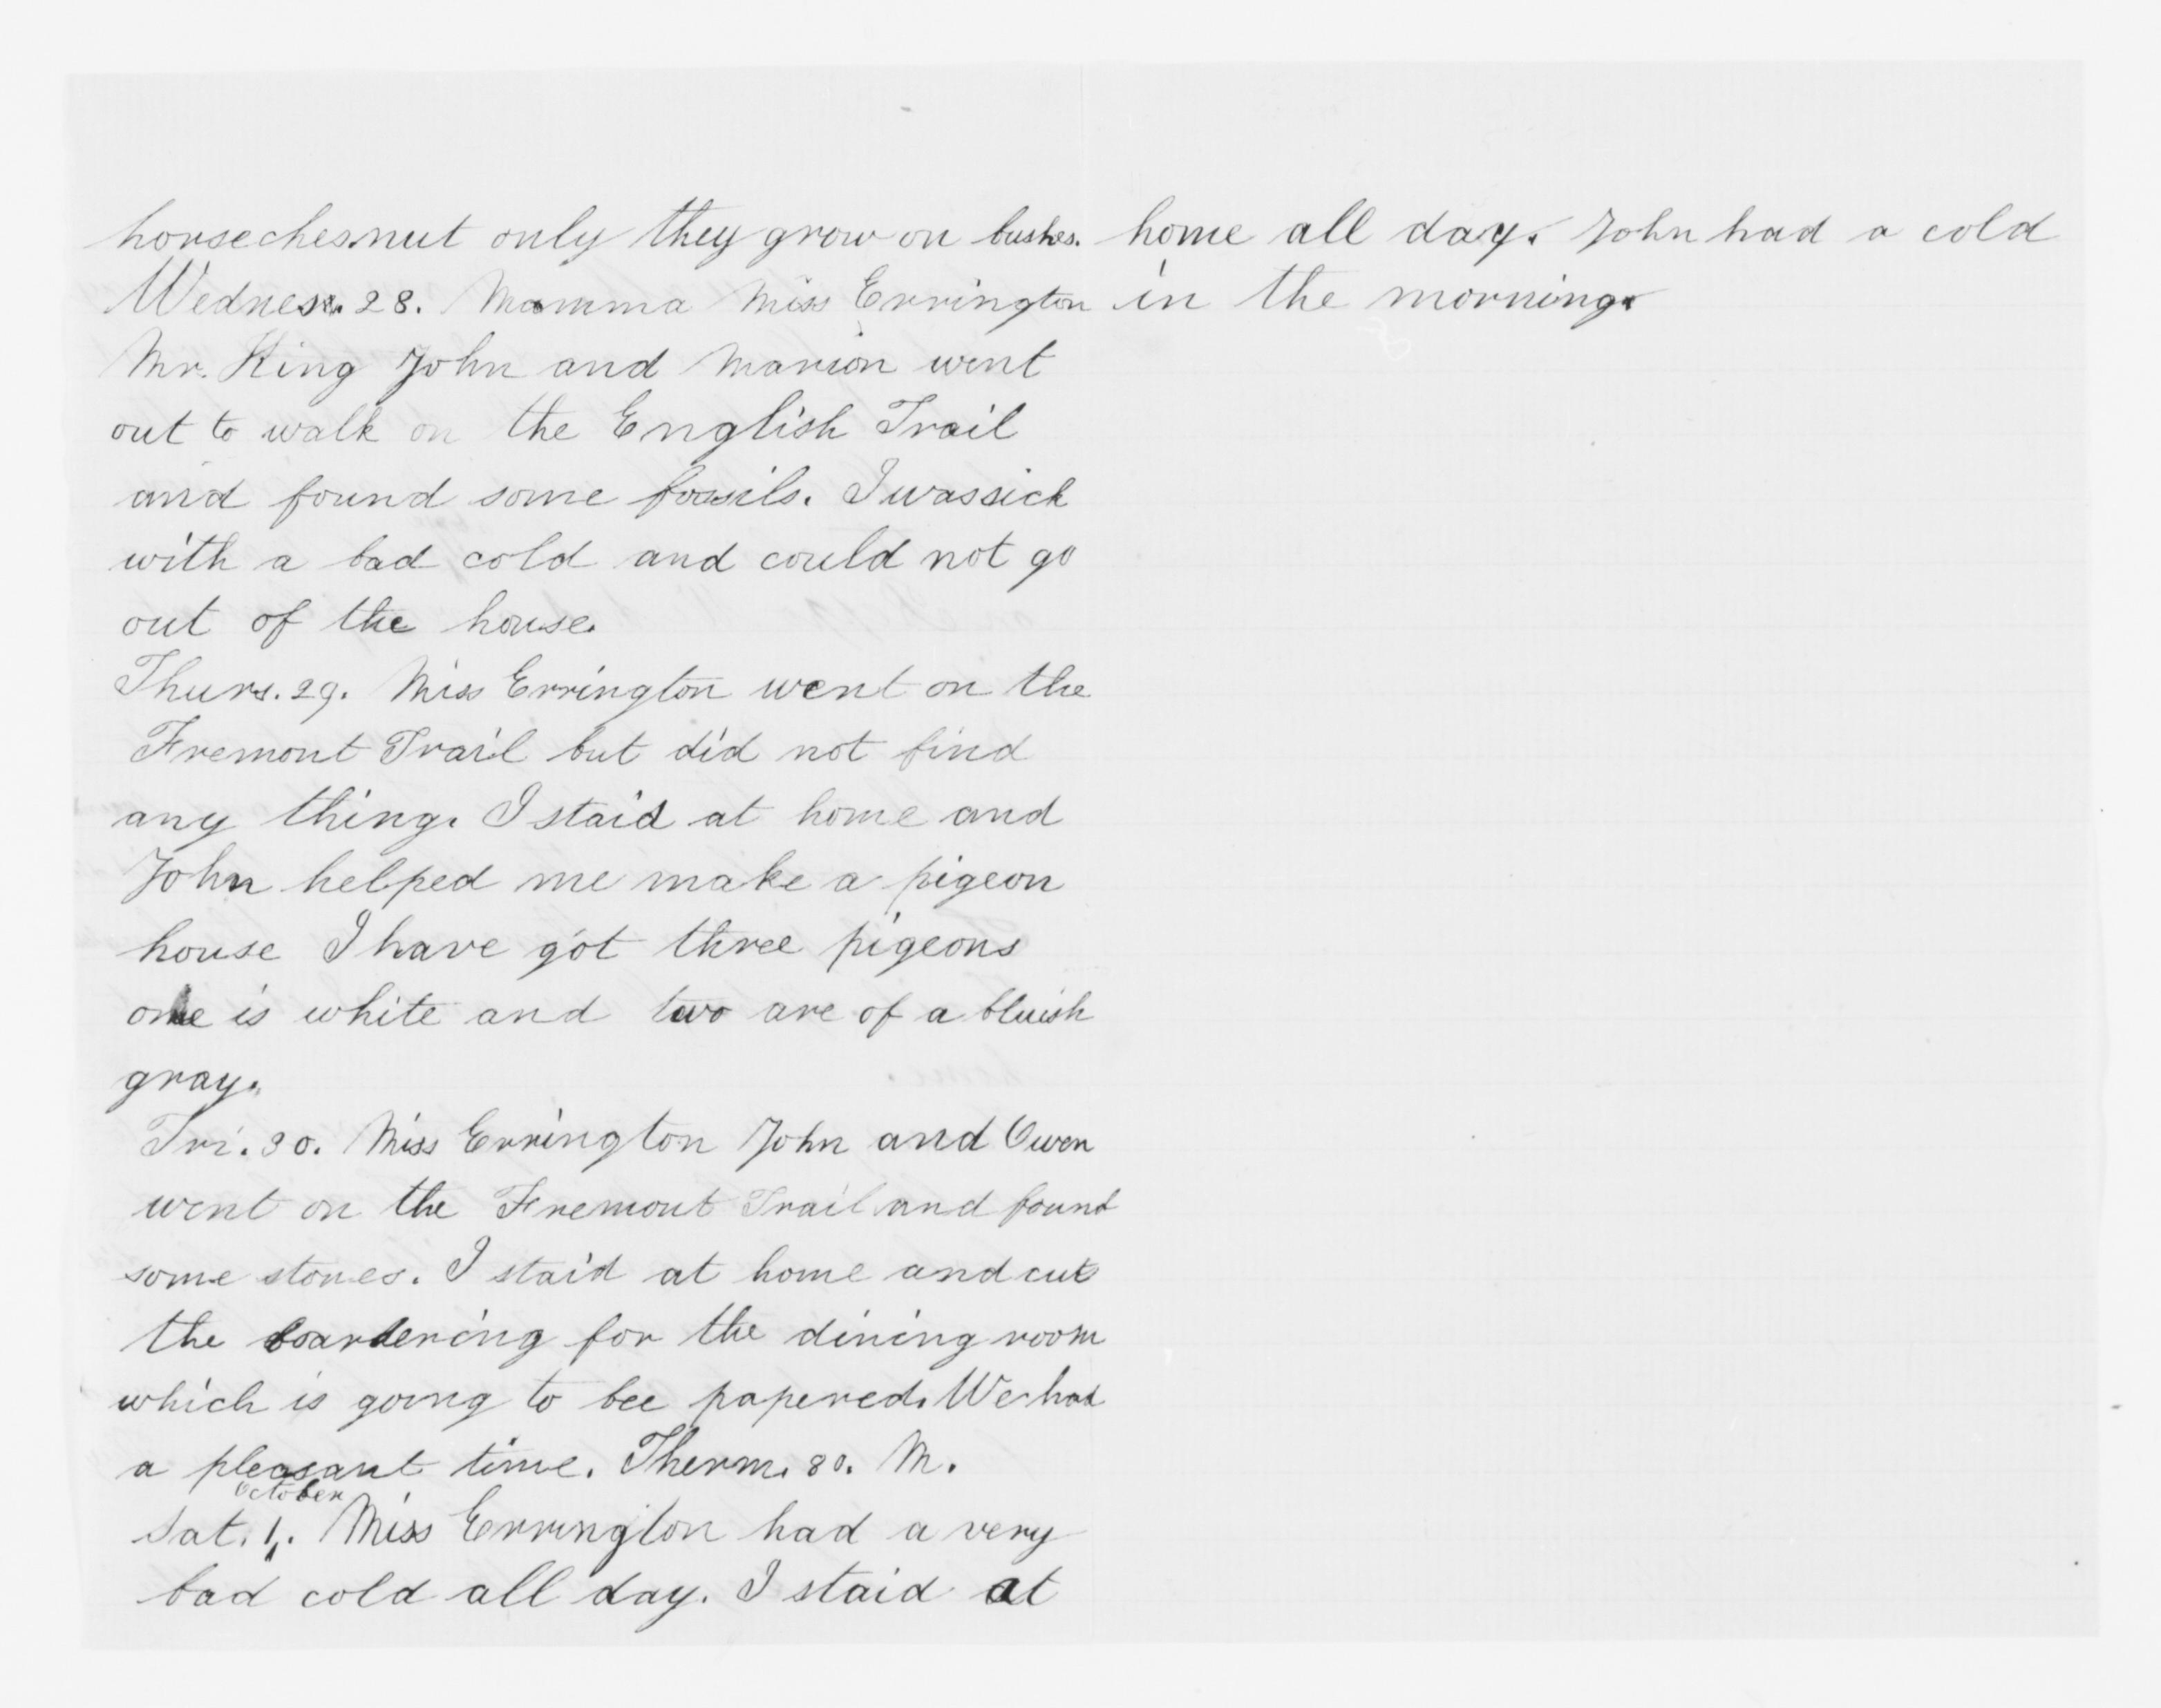 horsechesnut only they grow on bushes.
Wednes. 28. Mamma Miss Errington
Mr. King John and Marion went
out to walk on the English Trail
and found some fossils. I was sick
with a bad cold and could not go
out of the house.
Thurs. 29. Miss Errington went on the
Fremont Trail but did not find
any thing. I staid at home and
John helped me make a pigeon
house I have got three pigeons
one is white and two are of a bluish
gray.
Fri. 30. Miss Errington John and Owen
went on the Fremont Trail and found
some stones. I staid at home and cut
the boardering for the dining room
which is going to bee papered. We had
a pleasant time. Therm. 80. M.
October
Sat. 1. Miss Errington had a very
bad cold all day. I staid at
home all day. John had a cold
in the morning.